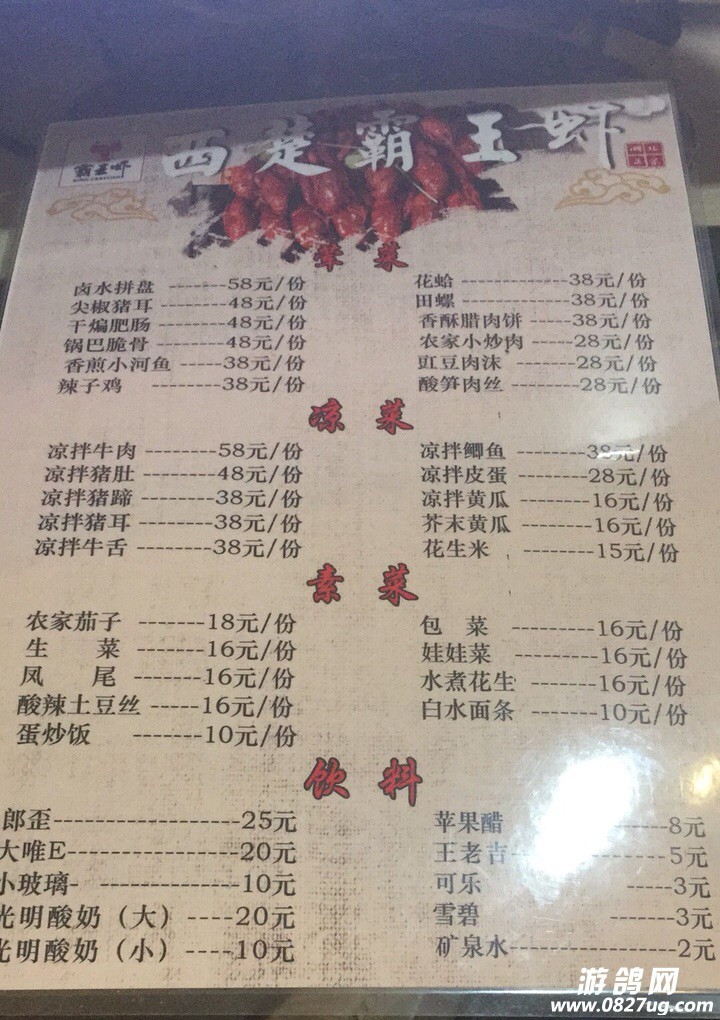 西楚霸王虾
霸王虾
荤菜
卤水拼盘 -------58元/份
尖椒猪耳 --------48元/份
干煸肥肠 --------48元/份
锅巴脆骨 --------48元/份
香煎小河鱼 ------38元/份
辣子鸡 ---------38元/份
花蛤 -------------38元/份
田螺 -------------38元/份
香酥腊肉饼 -----38元/份
农家小炒肉 -----28元/份
豇豆肉沫 -------28元/份
酸笋肉丝 -------28元/份
凉菜
凉拌牛肉 --------58元/份
凉拌猪肚 --------48元/份
凉拌猪蹄 --------38元/份
凉拌猪耳 --------38元/份
凉拌牛舌 --------38元/份
凉拌鲫鱼 --------38元/份
凉拌皮蛋 --------28元/份
凉拌黄瓜 --------16元/份
芥末黄瓜 --------16元/份
花生米 --------15元/份
素菜
农家茄子 -------18元/份
生菜 --------16元/份
凤尾 --------16元/份
酸辣土豆丝 -----16元/份
蛋炒饭 --------10元/份
包菜 ---------16元/份
娃娃菜 ---------16元/份
水煮花生 -------16元/份
白水面条 -------10元/份
饮料
郎歪------------------25元
大唯E----------------20元
小玻璃- -------------10元
光明酸奶（大）----20元
光明酸奶（小）----10元
苹果醋 -------8元
王老吉------5元
可乐 ----3元
雪碧 -------3元
矿泉水---------------2元
游鸽网
www.0827ug.com